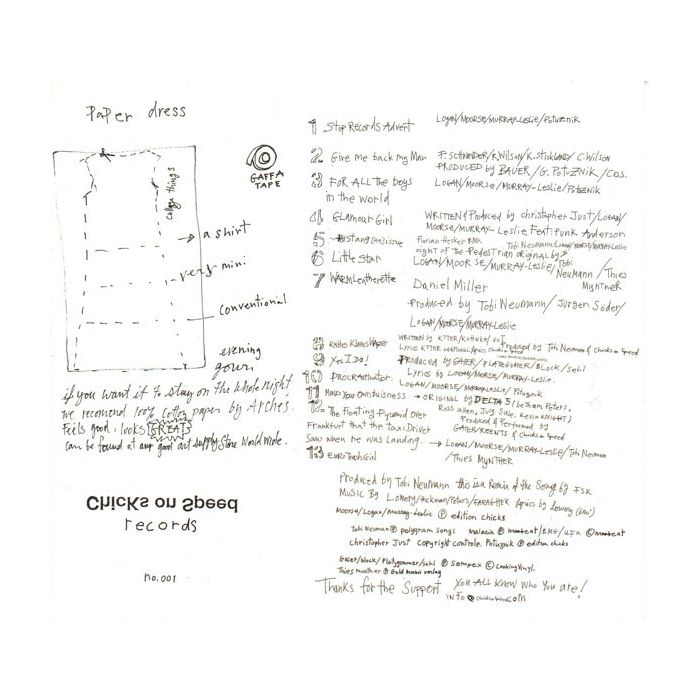 Paper dress
collage things
GAFFA
TAPE
a shirt
very mini
conventional
evening
gown
if you want it to stay on the whole night,
we recomend 100% cotton paper by Arches.
Feels good, looks GREAT
can be found at any good art supply store World wide.
Chicks on Speed
records
no.001
1 Stop Records Advert LOGAN/MOORSE/MURRAY-Leslie/Potuznik
2 Give me back my Man F. SCHNEIDER/R.Wilson/K.STRICKLAND/C.Wilson
PRODUCED BY BAUER/G. POTUZNIK/COS.
3 FOR ALL the boys LOGAN/MOORSE/MURRAY-Leslie/POTUZNIK
in the world
4 GLamour Girl WRITTEN & Produced by christopher Just/LOGAN/
MOORSE/MURRAY-Leslie Feat: Punk Anderson
5 Florian Hecker RMX Tobi Neumann/LOGAN/MOORSE/MURRAY-Leslie
night of the Pedestrian ORIGINAL by
6 Little Star LOGAN/MOORSE/MURRAY-Leslie/Tobi
Neumann/Thies
Mynther
7 WARM Leatherette Daniel Miller
Produced by Tobi Neumann/Jurgen Söder/
LOGAN/MOORSE/MURRAY-LESLIE
8 WRITTEN by Produced by Tobi Neumann & Chicks on Speed
Lyrics Chicks on Speed
9 Yes I Do! Produced by GAIER/PLATZGUMER/BLOCK/Sehl
Lyrics by LOGAN/MOORSE/MURRAY-Leslie.
10 PROCRASTinator LOGAN/MOORSE/MURRAY-Leslie/Potuznik
11 MIND YOUR OWN business → ORIGINAL by DELTA 5 (betham Peters,
Ross Allen, Julz Sale, Kevin KNIGHT)
12 The Floating Pyramid Over Produced & Performed by
Frankfurt that the taxi Driver GAIER/KREENTS & Chicks on Speed
Saw when he was Landing. → LOGAN/MOORSE/MURRAY-Leslie/Tobi Neumann
/Thies MYNTHER
13 EuroTrashGirl
Produced by Tobi Neumann this is a Remix of the Song by FSK
MUSIC By LOWERY/Hickman/Peters/FARAGHER Lyrics by Lowery
Moorse/Logan/Murray-Leslie Ⓟ edition chicks
Tobi Neumann Ⓟ polygram songs Malaria Ⓟ moabeat/BMG/UFA © moabeat
christopher Just Copyright controle. Potuznik Ⓟ edition chicks
Gaier/block/Platzgummer/sehl Ⓟ Sempex © Cooking Vinyl.
Thies Mynther Ⓟ Gold Music verlag
Thanks for the Support YOU ALL KNOW Who You are!
INFO@chicksonspeed.com